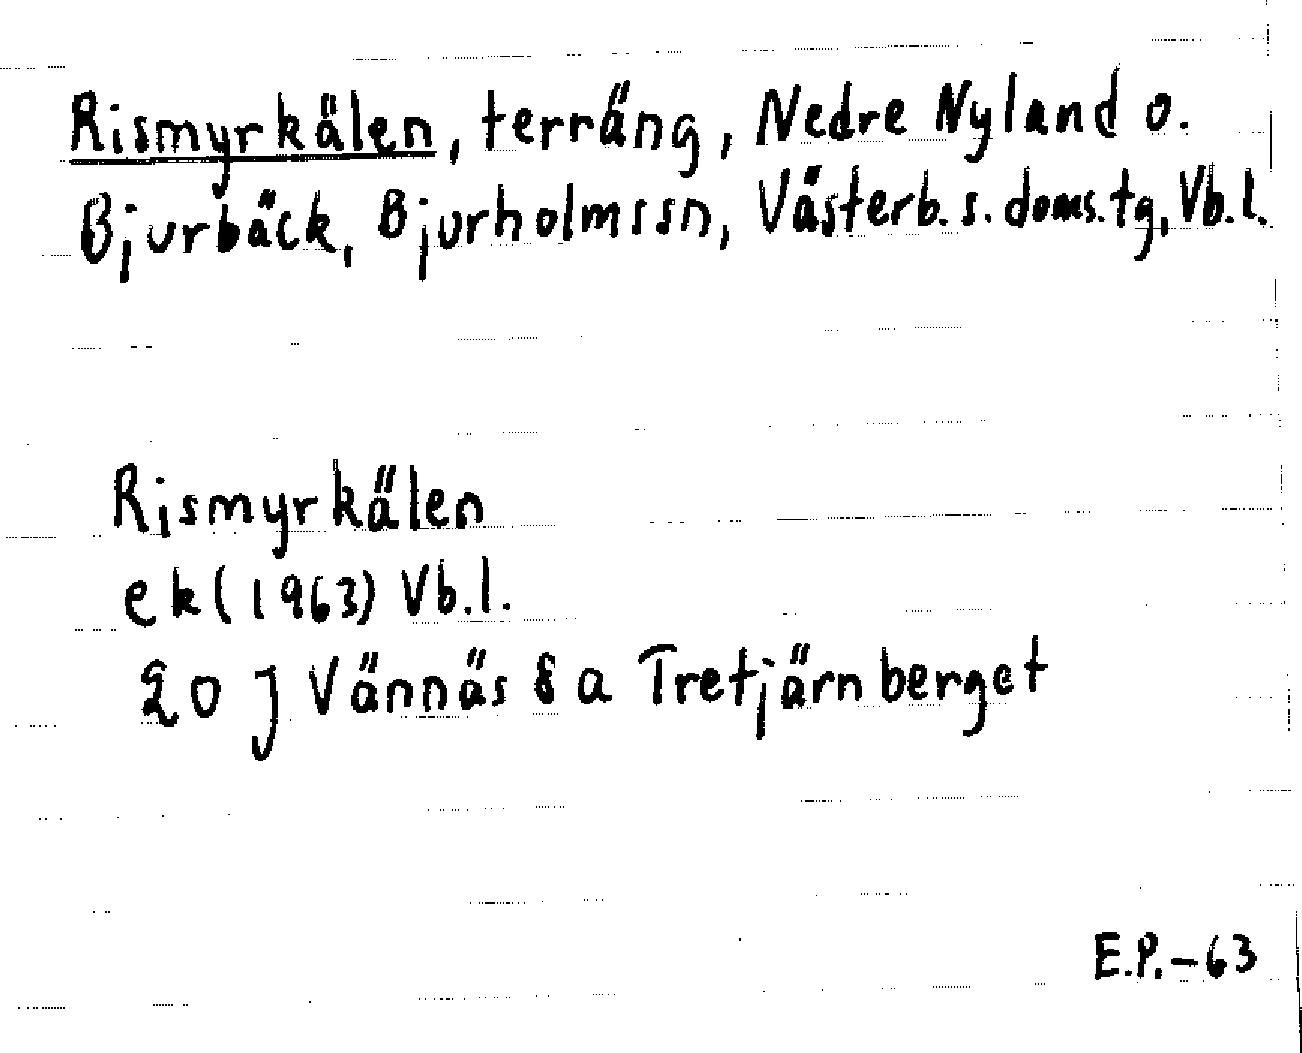 Rismyrkälen, terräng, Nedre Nyland o.
Bjurbäck, Bjurholmssn, Västerb. s. doms. tg, Vb. l.
Rismyrkälen
ek (1963) Vb. l.
20 J Vännäs 8 a Tretjärnberget
E.P.-63